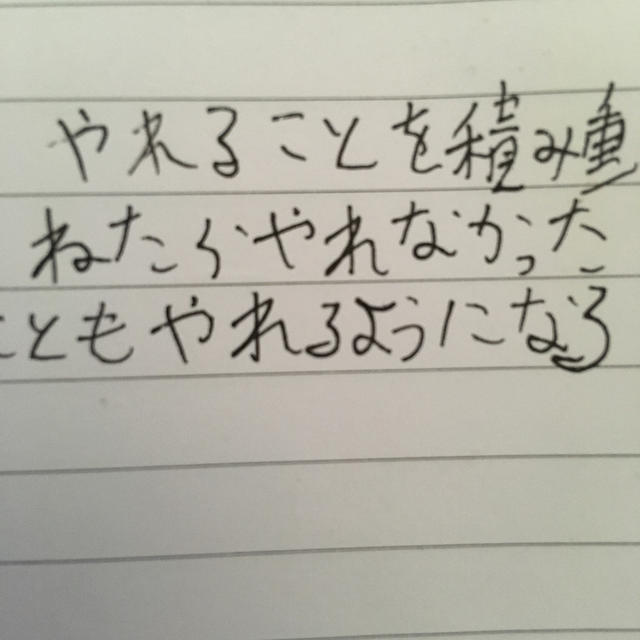 やれることを積み重
ねたらやれなかった
こともやれるようになる